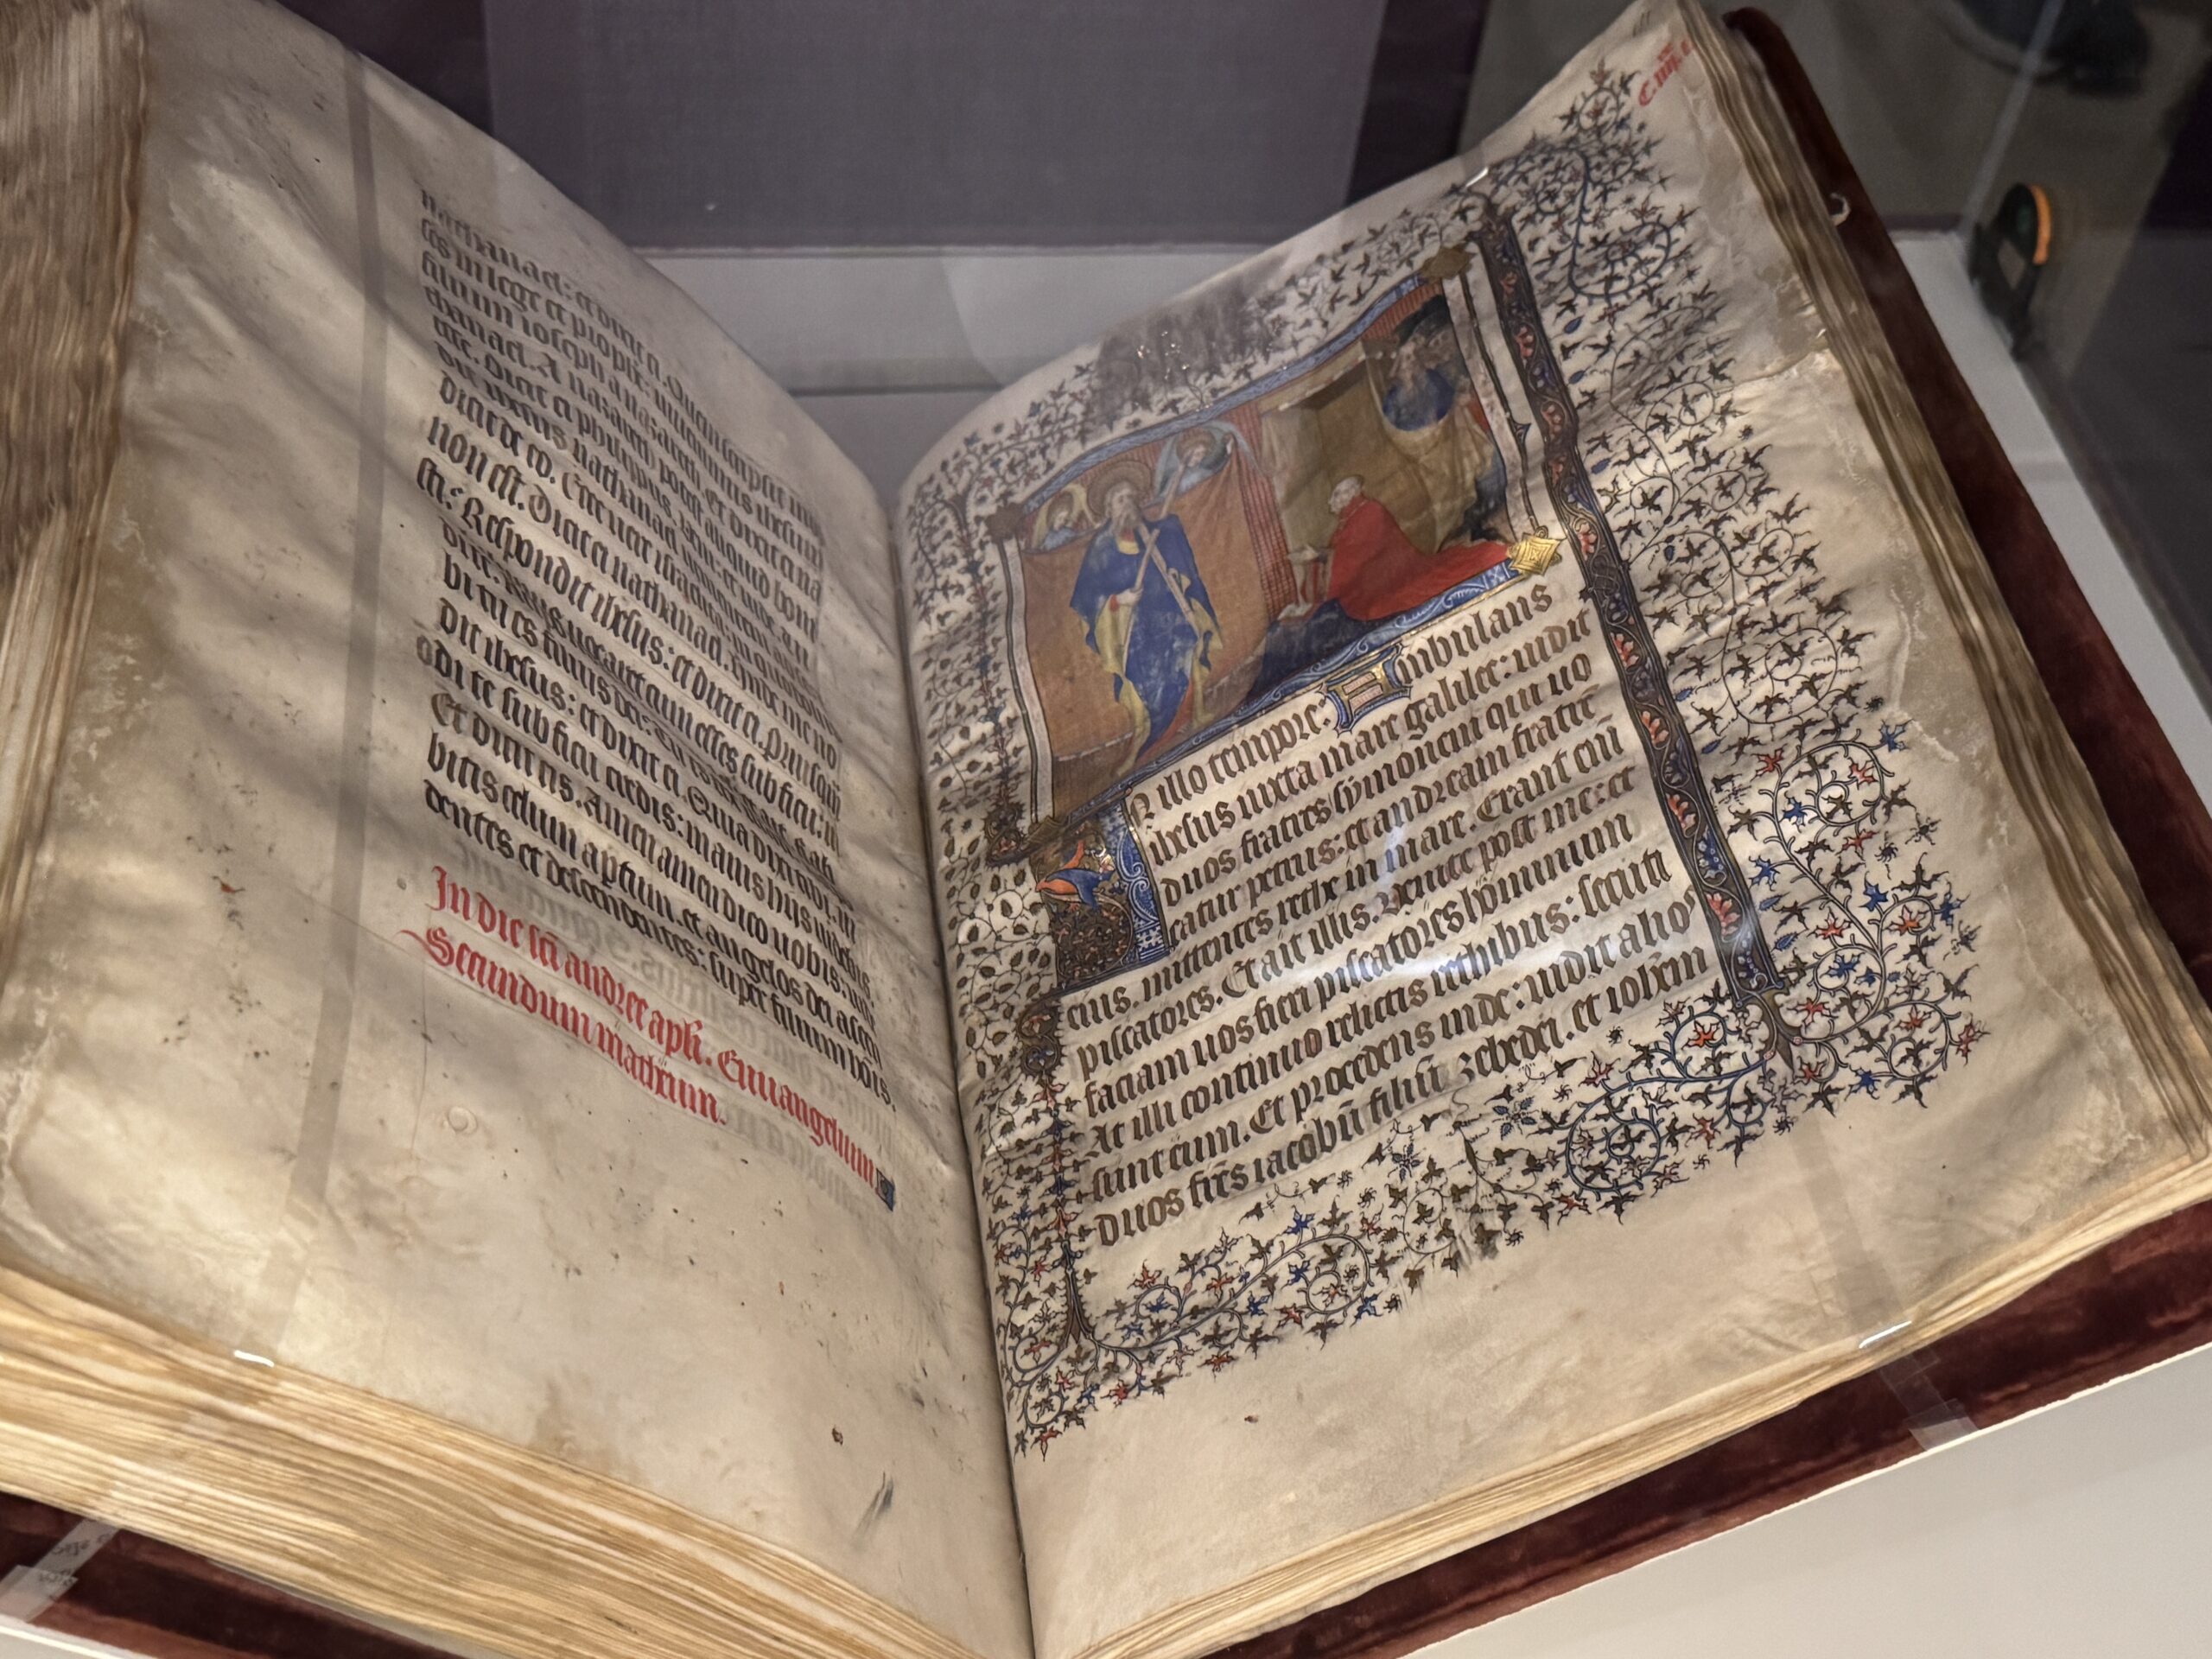 nathanael: et dixit ei. Quem scripsit
ses in lege et prophete: inuenimus ihesum
filium ioseph a nazareth. Et dixit ei na
thanael. A nazareth potest aliquid boni
philippus
nathanael
dicit de eo. Ecce uere israelita: in quo dolus
non est. Dicit ei nathanael. Vnde me no
sti: Respondit ihesus: et dixit ei. Priusqua
bi tu es filius dei: Tu es rex
dit ihesus: et dixit ei. Quia dixi tibi. ui
di te sub ficu credis: maius hijs uidebis.
Et dicit eis. Amen amen dico uobis: uide
bitis celum aptum. et angelos dei ascen
dentes et descendentes: super filium hois.
In die sci andree apli. Euuangelium
Secundum matheum.
N illo tempore: Ambulans
ihesus iuxta mare galilee: uidit
duos fratres symonem qui uo
catur petrus: et andream fratre
eius. mittentes rethe in mare. Erant eni
piscatores. Et ait illis. Venite post me: et
faciam uos fieri piscatores hominum
At illi continuo relictis rethibus: secuti
sunt eum. Et procedens inde: uidit alios
duos frēs iacobū filiū zebedei. et iohem